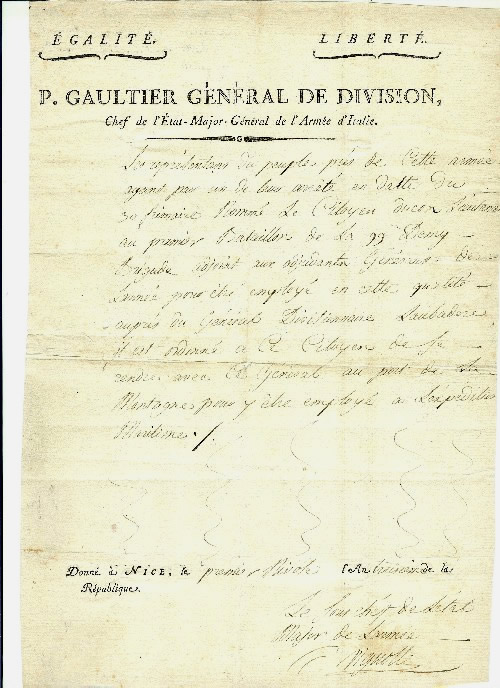 ÉGALITÉ. LIBERTÉ.
P. GAULTIER GÉNÉRAL DE DIVISION,
Chef de l'État-Major-Général de l'Armée d'Italie.
Les représentans du peuple près de Cette armée
ayant par un de leur arrêté en datte du
30 frimaire Nommé Le Citoyen
au premier Bataillon de La 99 Demy
Brigade adjoint aux adjudants Généraux de
L'armée pour être employé en cette qualité
auprès du Général Divisionnaire Laubadere
il est ordonné a Ce Citoyen de Se
rendre avec Ce Général au port de la
Montagne pour y être employé a L'expédition
Maritime ./.
Donné à NICE, le premier Nivose l'An troisieme de la
République.
Le Sous chef de L'état
Major de L'armée
Vignolle